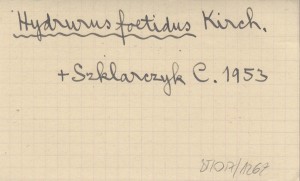 Hydrurus foetidus Kirch.
+ Szklarczyk C. 1953